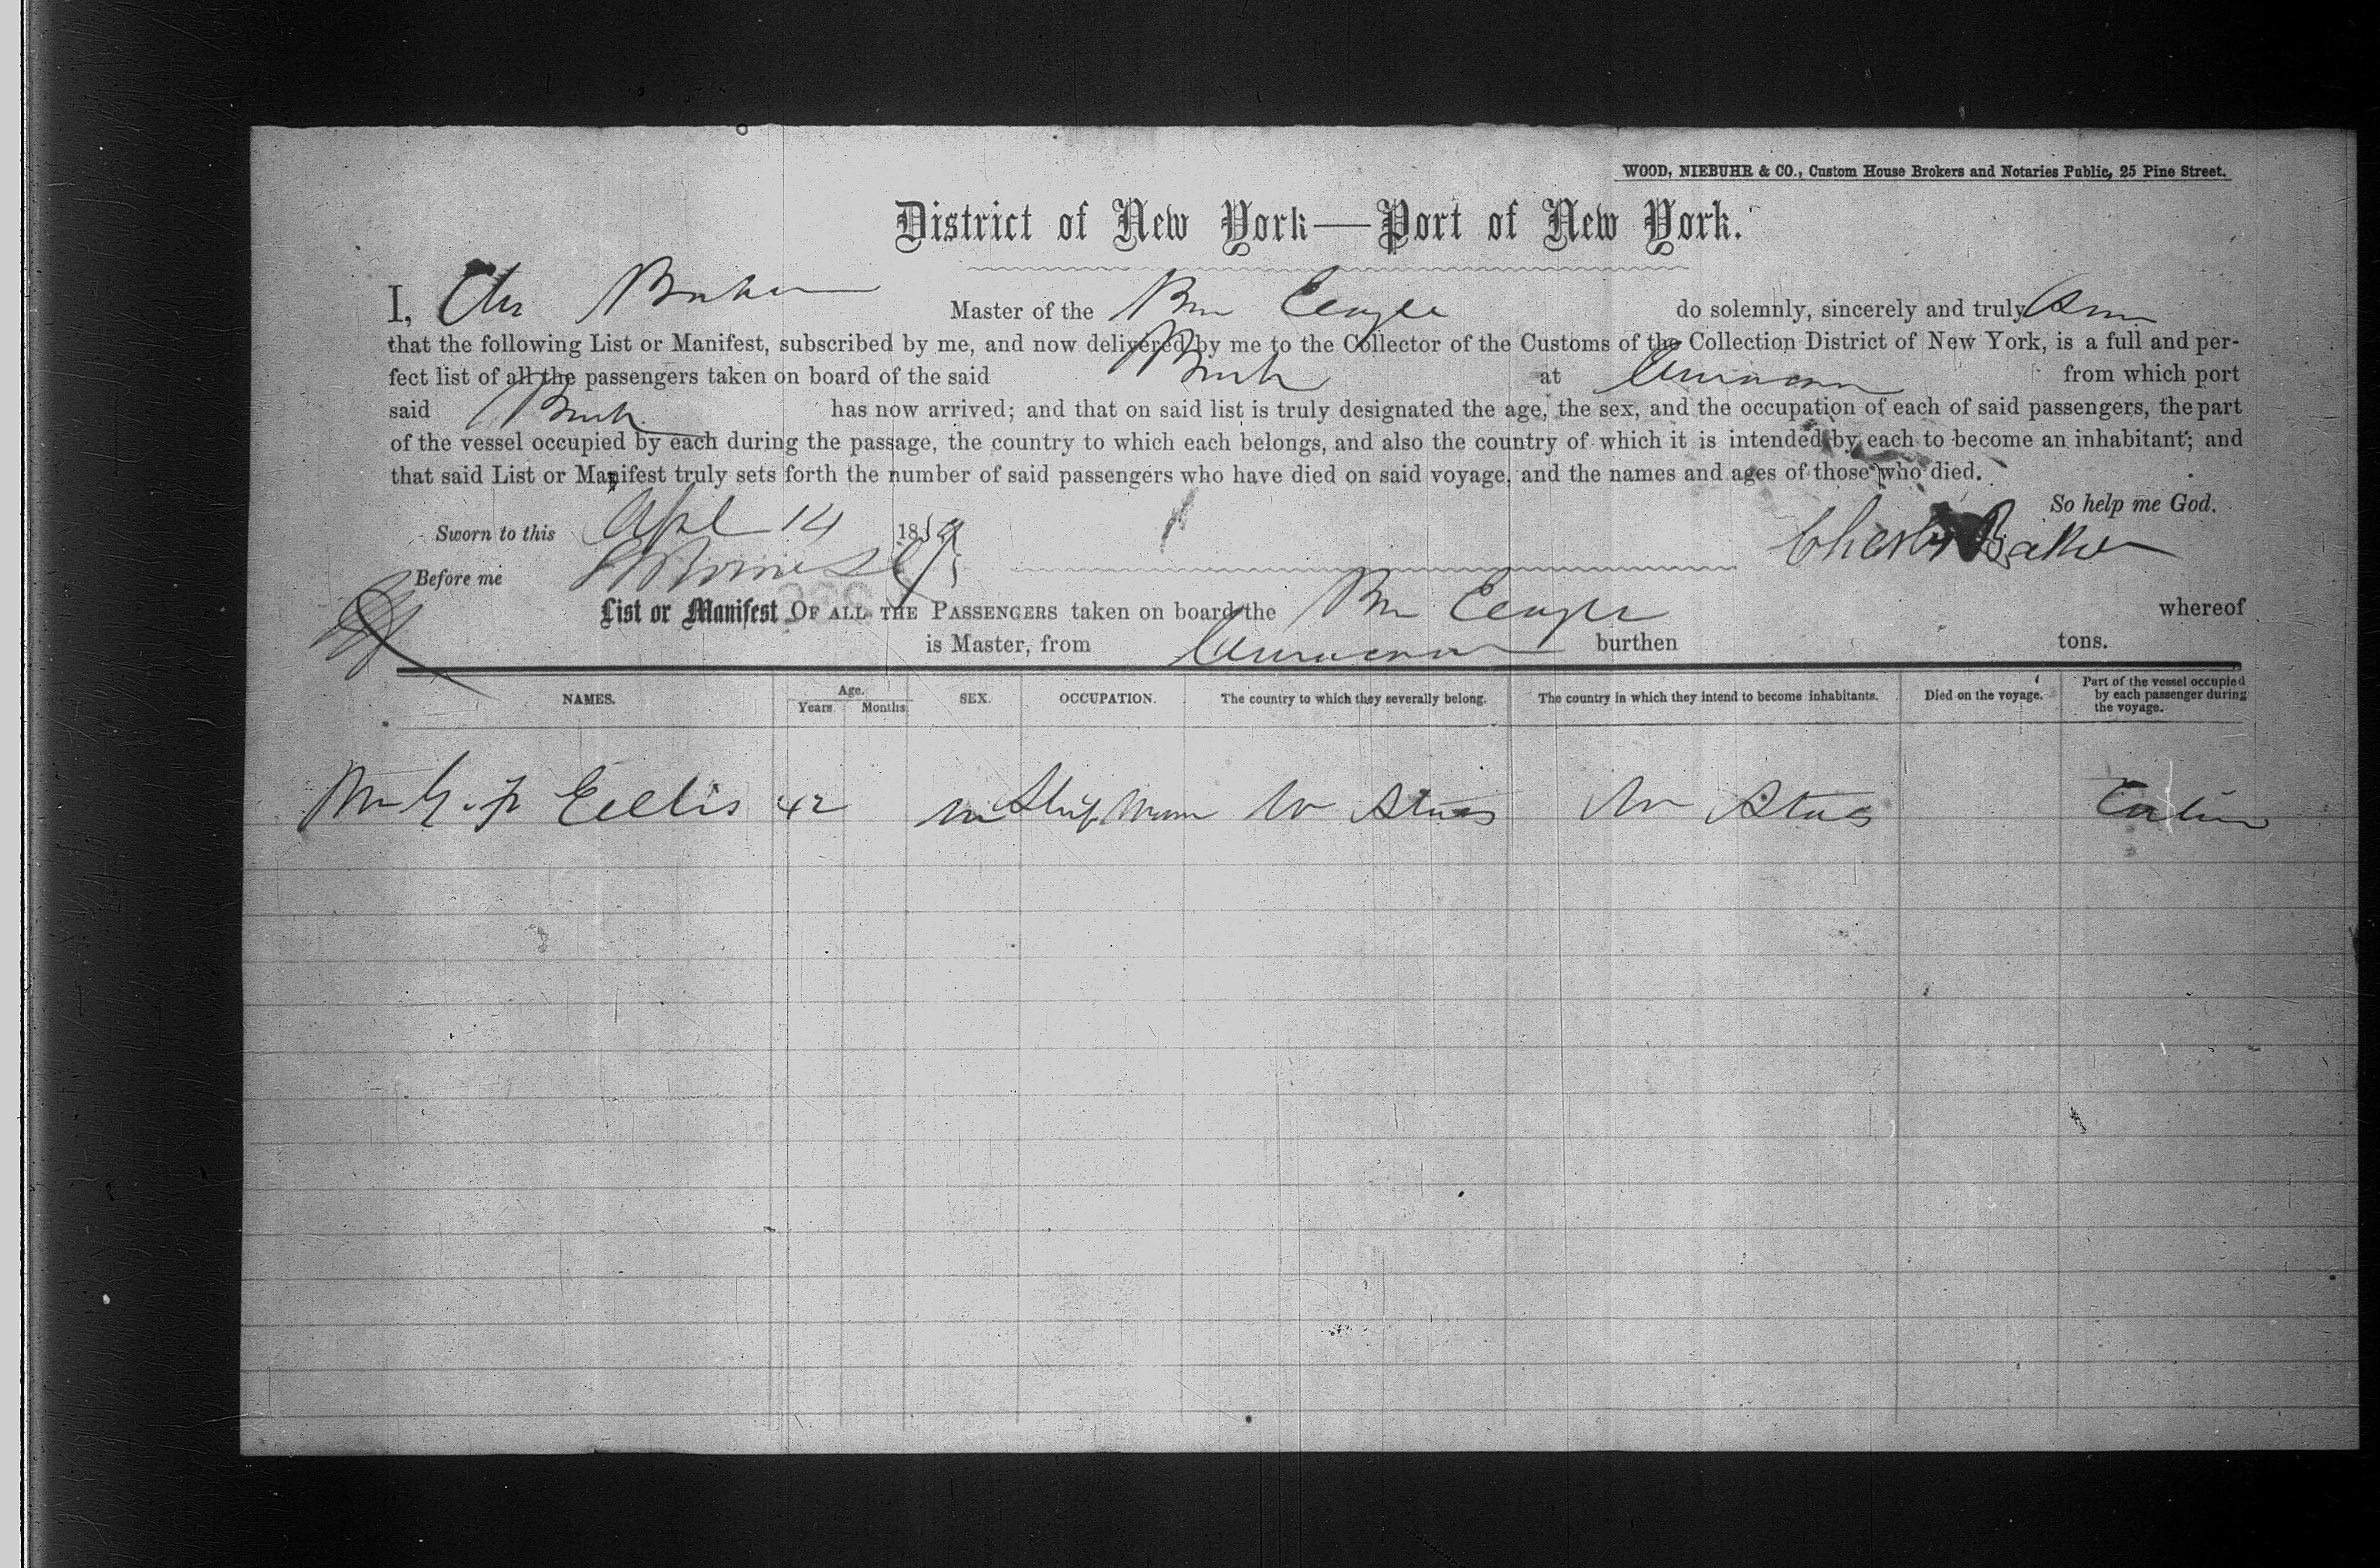 WOOD, NIEBUHR & CO., Custom House Brokers and Notaries Public, 25 Pine Street.
District of New York—Port of New York.
I, Chs Baker Master of the Eagle do solemnly, sincerely and truly
that the following List or Manifest, subscribed by me, and now delivered by me to the Collector of the Customs of the Collection District of New York, is a full and per-
fect list of all the passengers taken on board of the said at Curacoa from which port
said has now arrived; and that on said list is truly designated the age, the sex, and the occupation of each of said passengers, the part
of the vessel occupied by each during the passage, the country to which each belongs, and also the country of which it is intended by each to become an inhabitant; and
that said List or Manifest truly sets forth the number of said passengers who have died on said voyage, and the names and ages of those who died.
So help me God.
Sworn to this Apl 14 1859
Charles Baker
Before me
List or Manifest OF ALL THE PASSENGERS taken on board the Eagle whereof
is Master, from Curacoa burthen tons.
NAMES. Age. Years. Months. SEX. OCCUPATION. The country to which they severally belong. The country in which they intend to become inhabitants. Died on the voyage. Part of the vessel occupied by each passenger during the voyage.
Mr Ellis 42 m Ship U States U States Cabin